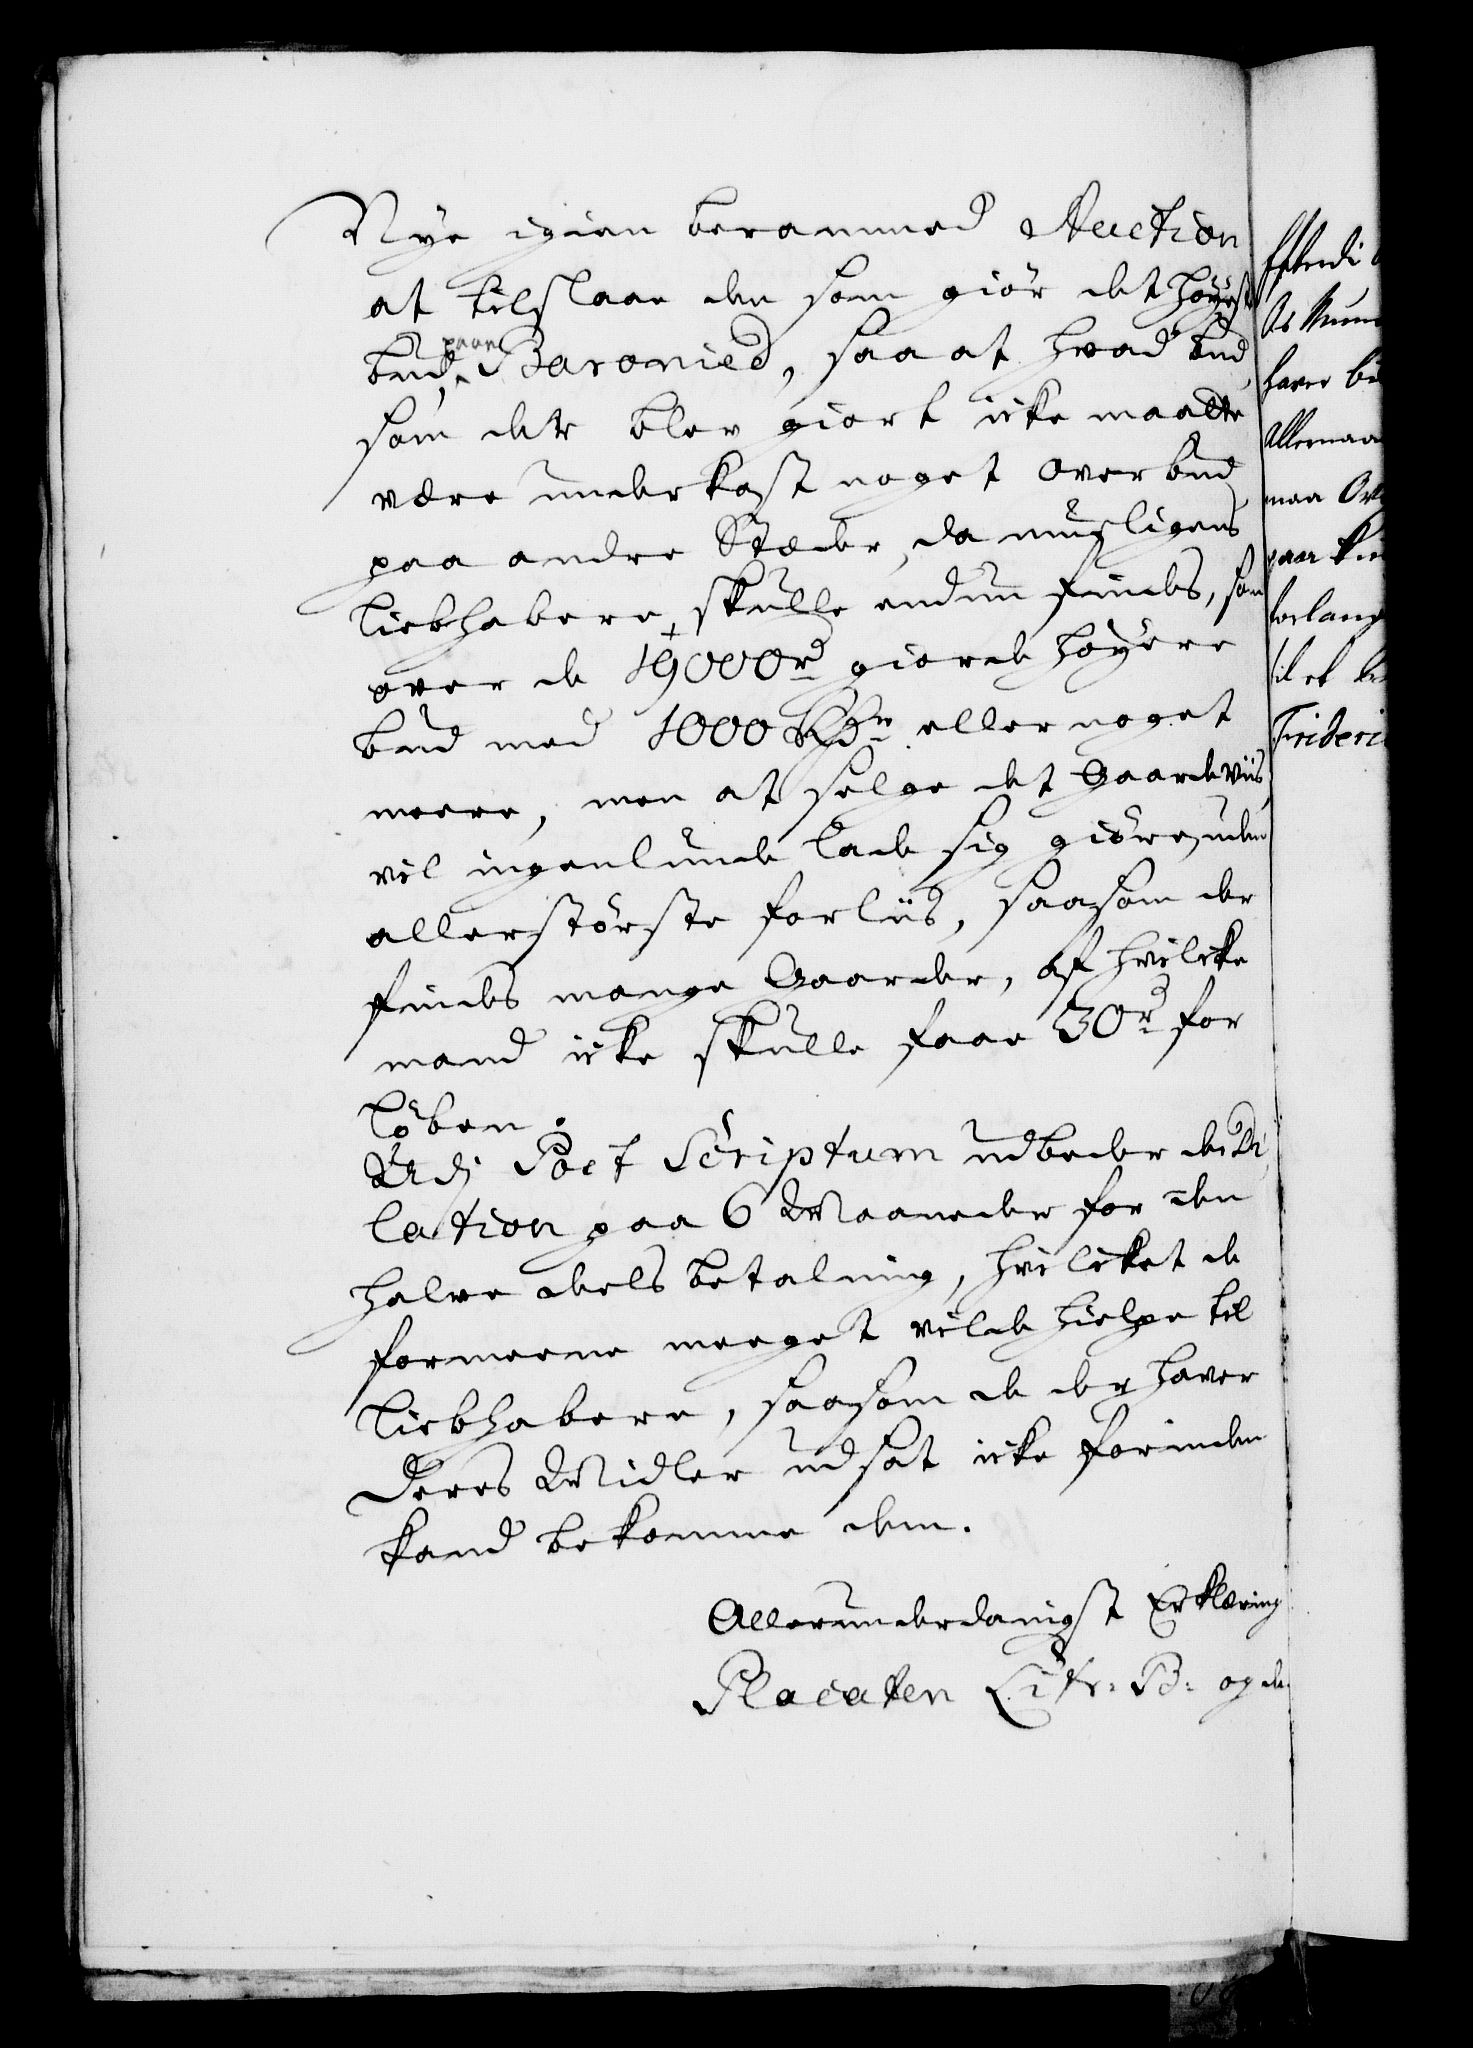 Nye igien berammed Auction
at tilslaae den som giör det höyeste
bud paae Baronied, saa at hvad bud
som der blev giort icke maatte
være underkast noget Overbud
paa andre Stæder, da mueligens
liebhabere skulle endnu findes, som
over de 19000 rd giorde höyere
bud med 1000 Rdr eller noget
meere, men at selge det Gaardeviis
vil ingenlunde lade sig giöre uden
allerstörste forliis, saasom der
findes mange Gaarder, af hvilcke
mand icke skulle faae 30 rd for
löben.
Udj Post Scriptum udbeder de Di
lation paa 6 Maaneder for den
halve deels betalning, hvilcket de
formeene meeget vilde hielpe til
liebhabere, saasom de der haver
Deres Midler udsat icke forinden
kand bekomme dem.
Allerunderdanigst Erklæring
Placaten Litr: B: og de
haver
maa
paa
Frideri